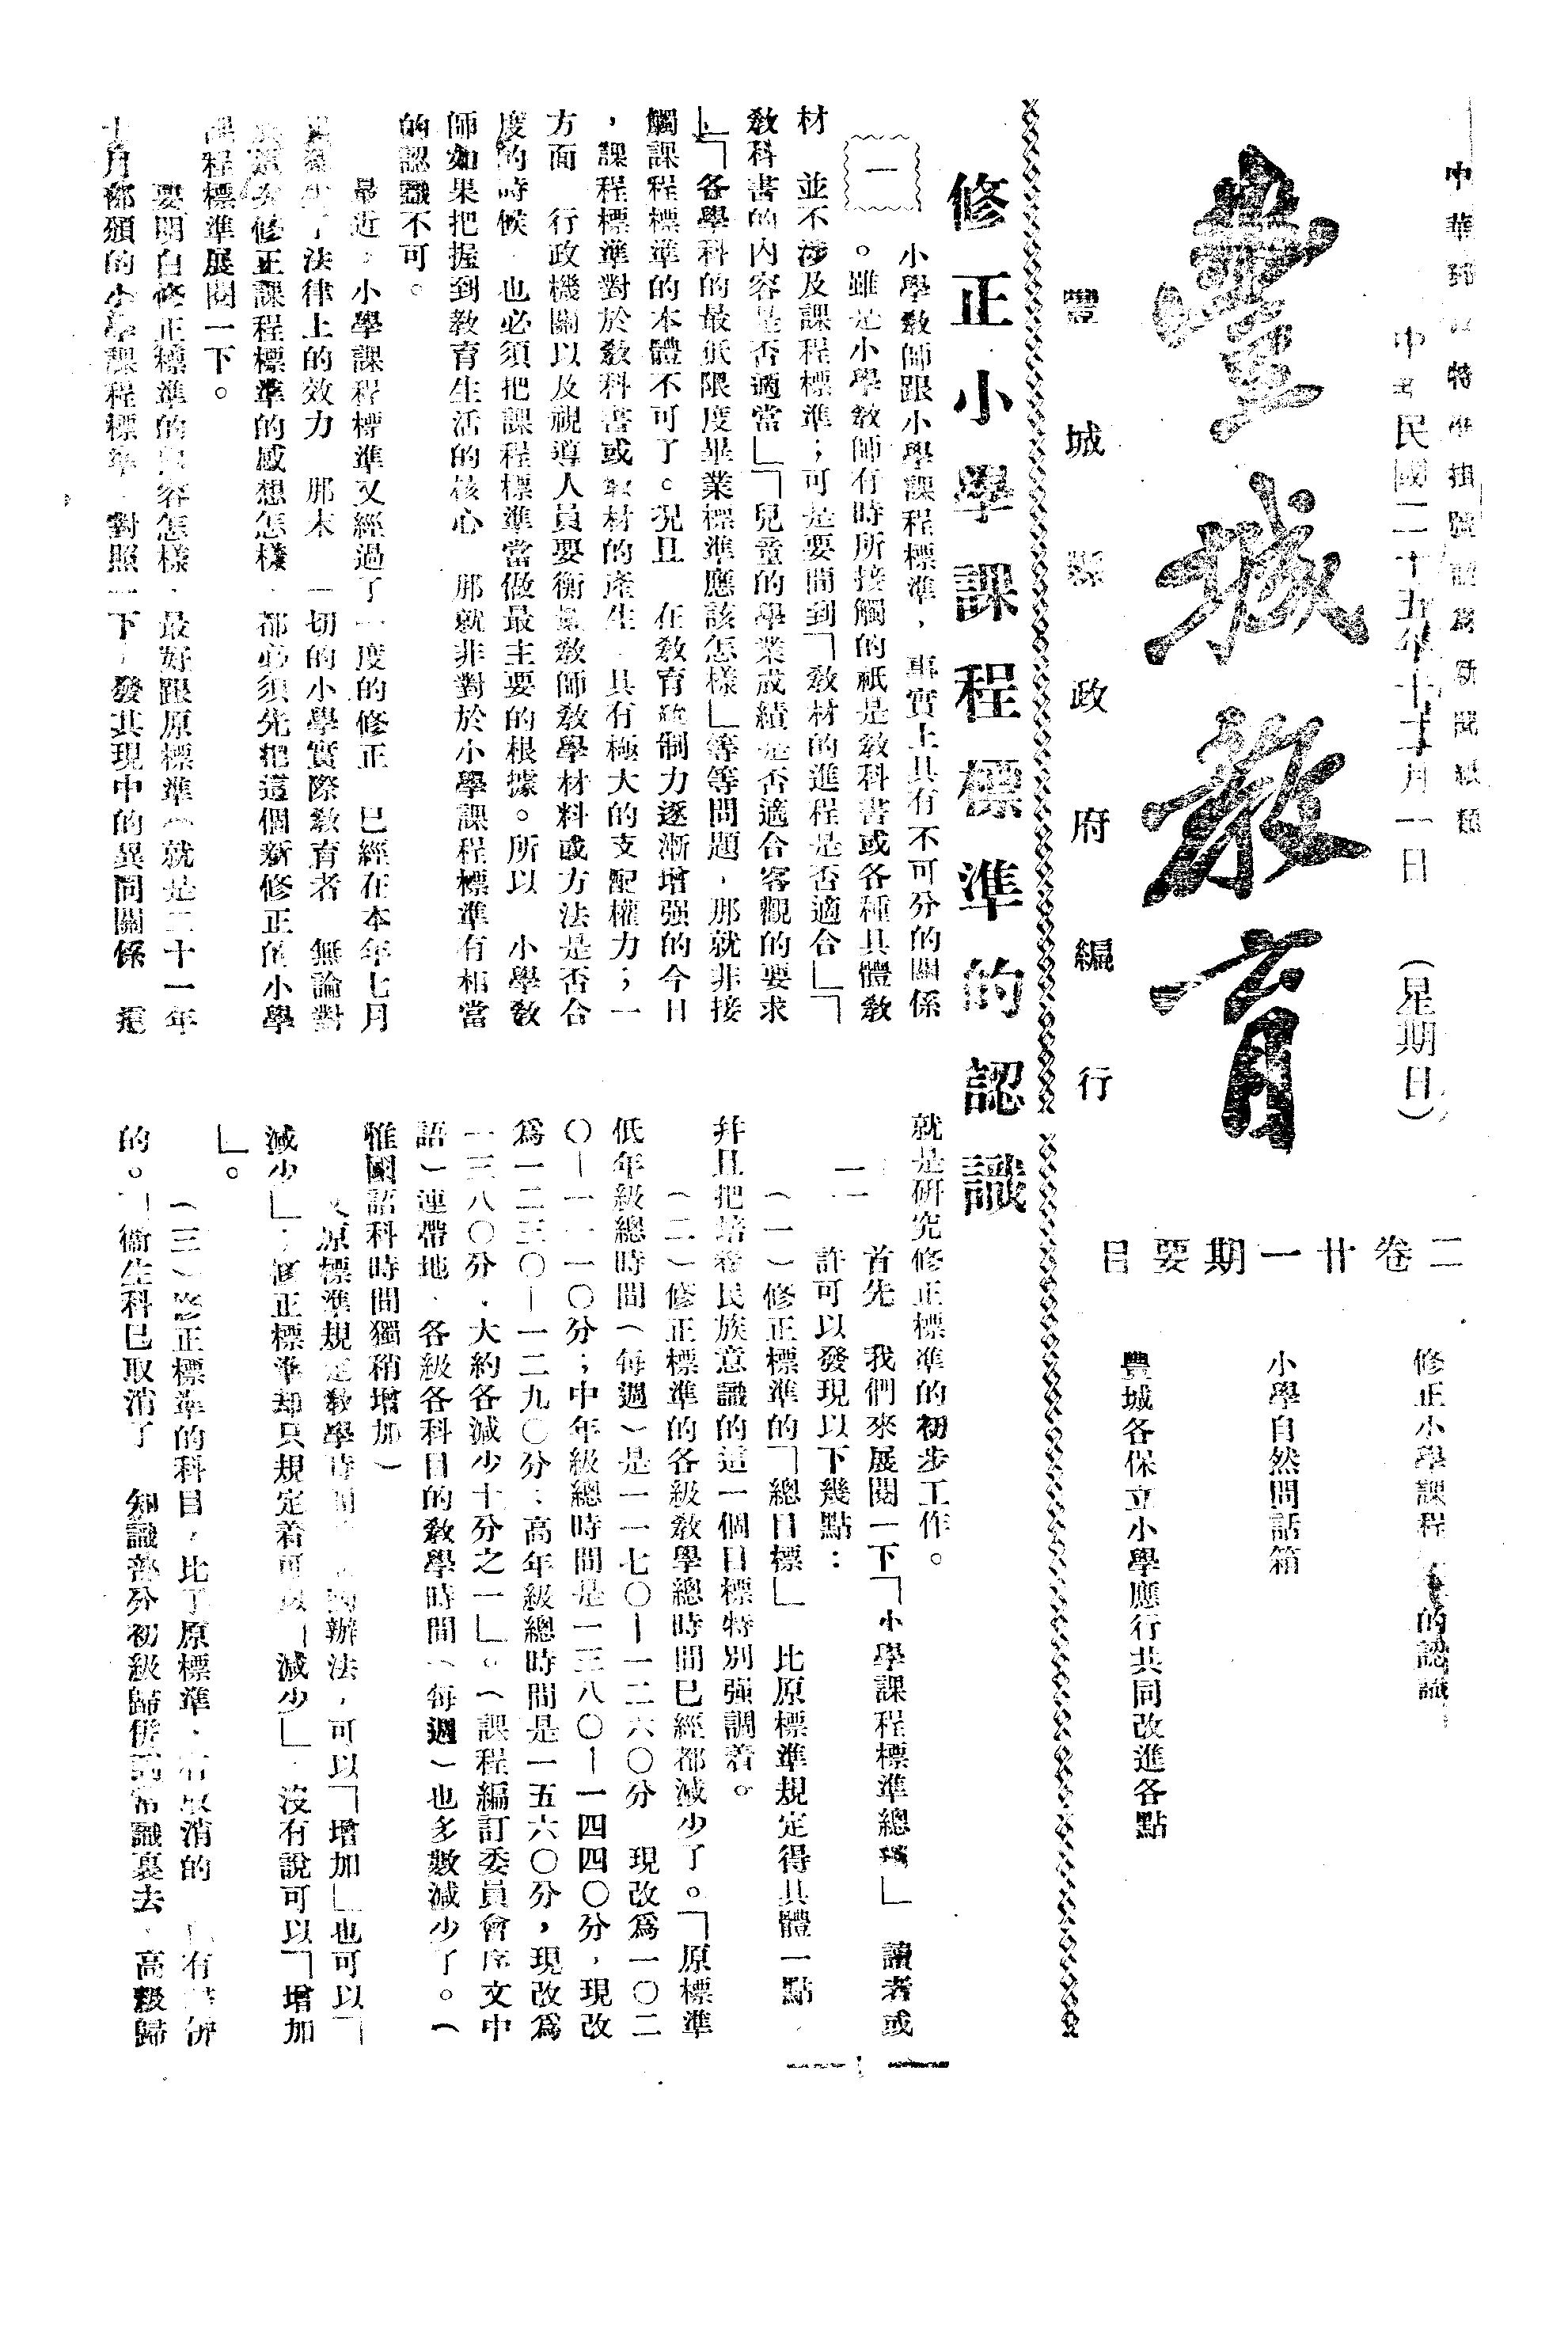 中華郵政特准掛號認爲新聞紙類
中華民國二十五年十二月一日　（星期日）
豐城教育
豐城縣政府編行
二卷廿一期要目
修正小學課程的認識
小學自然問話箱
豐城各保立小學應行共同改進各點
修正小學課程標準的認識
一
小學敎師跟小學課程標準，事實上具有不可分的關係
。雖是小學敎師有時所接觸的祇是敎科書或各種具體敎
材　並不涉及課程標準；可是要問到「敎材的進程是否適合」「
敎科書的內容是否適當」「兒童的學業成績是否適合客觀的要求
」「各學科的最低限度畢業標準應該怎樣」等等問題，那就非接
觸課程標準的本體不可了。況且　在敎育統制力逐漸增强的今日
，課程標準對於敎科書或敎材的產生，具有極大的支配權力；一
方面　行政機關以及視導人員要衡量敎師敎學材料或方法是否合
度的時候，也必須把課程標準當做最主要的根據。所以　小學敎
師如果把握到敎育生活的核心　那就非對於小學課程標準有相當
的認識不可。
最近，小學課程標準又經過了一度的修正　已經在本年七月
了法律上的效力　那末　一切的小學實際敎育者　無論對
修正課程標準的感想怎樣，都必須先把這個新修正的小學
課程標準展開一下。
要明白修正標準的內容怎樣，最好跟原標準（就是二十一年
十月部頒的小學課程標準，對照一下，發其現中的異同關係　這
就是研究修正標準的初步工作。
二
首先　我們來展閱一下「小學課程標準總」　讀者或
許可以發現以下幾點：
（一）修正標準的「總目標」　比原標準規定得具體一點
幷且把培養民族意識的這一個目標特別强調着。
（二）修正標準的各級敎學總時間已經都減少了。「原標準
低年級總時間（每週）是一一七〇—一二六〇分　現改爲一〇二
〇—一一一〇分；中年級總時間是一三八〇—一四四〇分，現改
爲一二三〇—一二九〇分；高年級總時間是一五六〇分，現改爲
一三八〇分，大約各減少十分之一」。（課程編訂委員會序文中
語）連帶地，各級各科目的敎學時間（每週）也多數減少了。（
惟國語科時間獨稍增加）
又原標準規定敎學時間辦法，可以「增加」也可以「
減少」；修正標準却只規定着可以「減少」，沒有說可以「增加
」。
（三）修正標準的科目，比了原標準，有取消的　有
的。「衞生科已取消了　知識部分初級歸併到常識裏去，高級歸